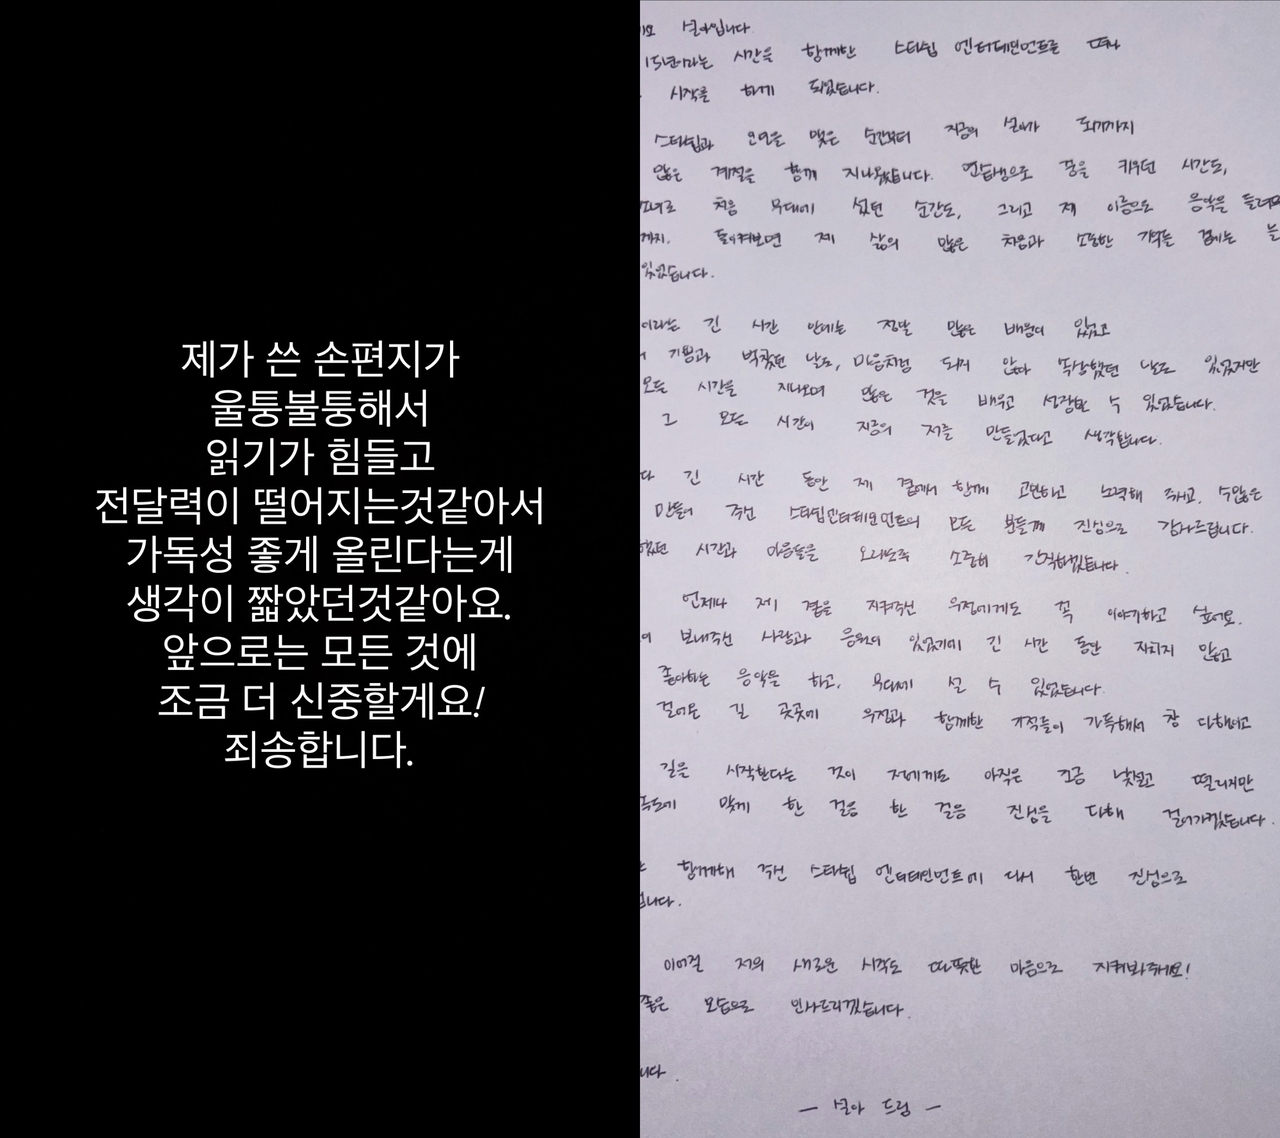 제가 쓴 손편지가
울퉁불퉁해서
읽기가 힘들고
전달력이 떨어지는것같아서
가독성 좋게 올린다는게
생각이 짧았던것같아요.
앞으로는 모든 것에
조금 더 신중할게요!
죄송합니다.
설아입니다
15년이라는 시간을 함께한 스타쉽 엔터테인먼트를 떠나
시작을 하게 되었습니다.
스타쉽과 인연을 맺은 순간부터 지금의 설아가 되기까지
많은 계절을 함께 지나왔습니다. 연습생으로 꿈을 키우던 시간도,
처음 무대에 섰던 순간도, 그리고 제 이름으로 음악을
까지. 돌이켜보면 제 삶의 많은 처음과 소중한 기억들 곁에는
있었습니다.
이라는 긴 시간 안에는 정말 많은 배움이 있었고
기쁨과 벅찼던 날도, 마음처럼 되지 않아 속상했던 날도 있었지만
모든 시간을 지나오며 많은 것을 배우고 성장할 수 있었습니다.
그 모든 시간이 지금의 저를 만들었다고 생각합니다.
긴 시간 동안 제 곁에서 함께 고민하고 노력해 주시고, 수많은
만들어 주신 스타쉽엔터테인먼트의 모든 분들께 진심으로 감사드립니다.
시간과 마음들을 오래도록 소중히 간직하겠습니다.
언제나 제 곁을 지켜주신 우정에게도 꼭 이야기하고 싶어요.
보내주신 사랑과 응원이 있었기에 긴 시간 동안 지치지 않고
좋아하는 음악을 하고, 무대에 설 수 있었습니다.
걸어온 길 곳곳에 우정과 함께한 기억들이 가득해서 참 다행이고
길을 시작한다는 것이 저에게도 아직은 조금 낯설고 떨리지만
속도에 맞게 한 걸음 한 걸음 진심을 다해 걸어가겠습니다.
함께해 주신 스타쉽 엔터테인먼트에 다시 한번 진심으로
니다.
이어질 저의 새로운 시작도 따뜻한 마음으로 지켜봐주세요!
좋은 모습으로 인사드리겠습니다.
니다.
- 설아 드림 -